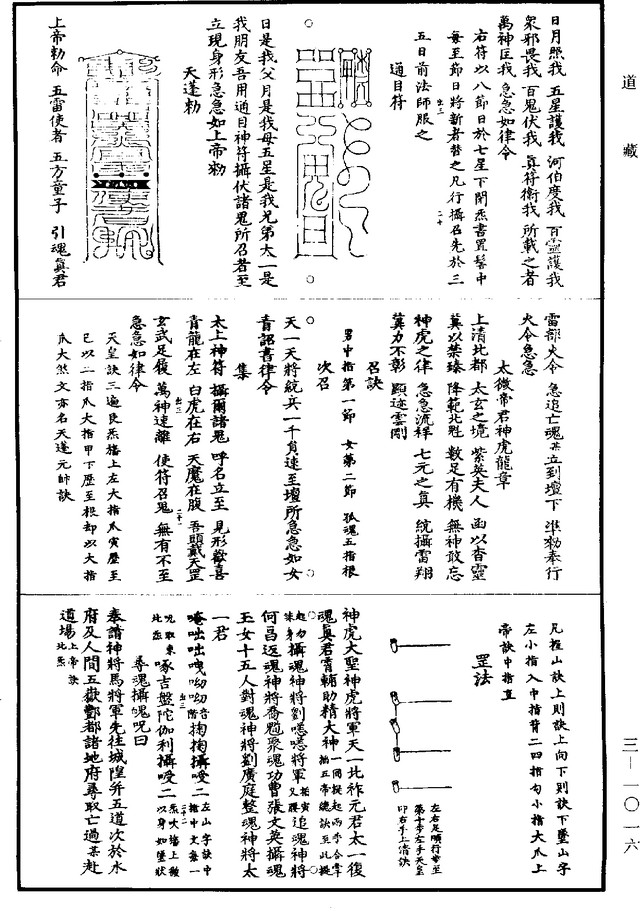 道藏
日月照我 五星護我 河伯度我 百靈護我
衆邪畏我 百鬼伏我 眞符衛我 所載之者
萬神匡我 急急如律令
右符以八節日於七星下閉炁書置髻中
每至節日將新者替之凡行攝召先於三
五日前法師服之
通目符
日是我父月是我母五星是我兄弟太一是
我朋友吾用通目神符攝伏諸鬼所召者至
立現身形急急如上帝勑
天蓬勑
上帝勑命 五雷使者 五方童子 引魂眞君
雷部火令 急追亡魂某立到壇下 準勑奉行
火令急急
太微帝君神虎龍章
上清北都 太玄之境 紫英夫人 函以杳靈
冀以禁臻 降範北甡 數足有機 無神敢忘
神虎之律 急急流祥 七元之眞 統攝雷翔
冀力不彰 顯迹雲剛
召訣
男中指第一節 女第二節 孤魂五指根
次召
天一天將統兵一千員速至壇所急急如女
青詔書律令
集
太上神符 攝爾諸鬼 呼名立至 見形歡喜
青龍在左 白虎在右 天魔在腹 吾頭戴天罡
玄武足履 萬神速離 使符召鬼 無有不至
急急如律令
天皇訣三遍良炁播上左大指爪寅歷至
巳以二指爪大指甲下歷至根却以大指
爪大煞文亦名天蓬元帥訣
凡握山訣上則訣上向下則訣下壘山字
左小指入中指背二四指勾小指大爪上
帝訣中指直
罡法
左右足順行帝至
第六步左手天皇
印右手上清訣
神虎大聖神虎將軍天一北祚元君太一復
魂眞君霄輔助精大神一同提起兩手合掌
拍五帝總訣至此提
起力攝魂神將劉嘻嘻將軍拍寅追魂神將
何昌返魂神將喬魁聚魂功曹張文英攝魂
玉女十五人對魂神將劉廣庭整魂神將太
一君
唵咄咄㗚呦呦音掏掏攝㖸二左山字訣中
指中文每一
咒取東啄吉盤陀伽利攝㖸二炁吹播上發
北炁以身如壘狀
尋魂攝魂咒曰
奉請神將馬將軍先往城隍并五道次於水
府及人間五嶽酆都諸地府尋取亡過某赴
道場上帝訣
北炁
三一一〇一六